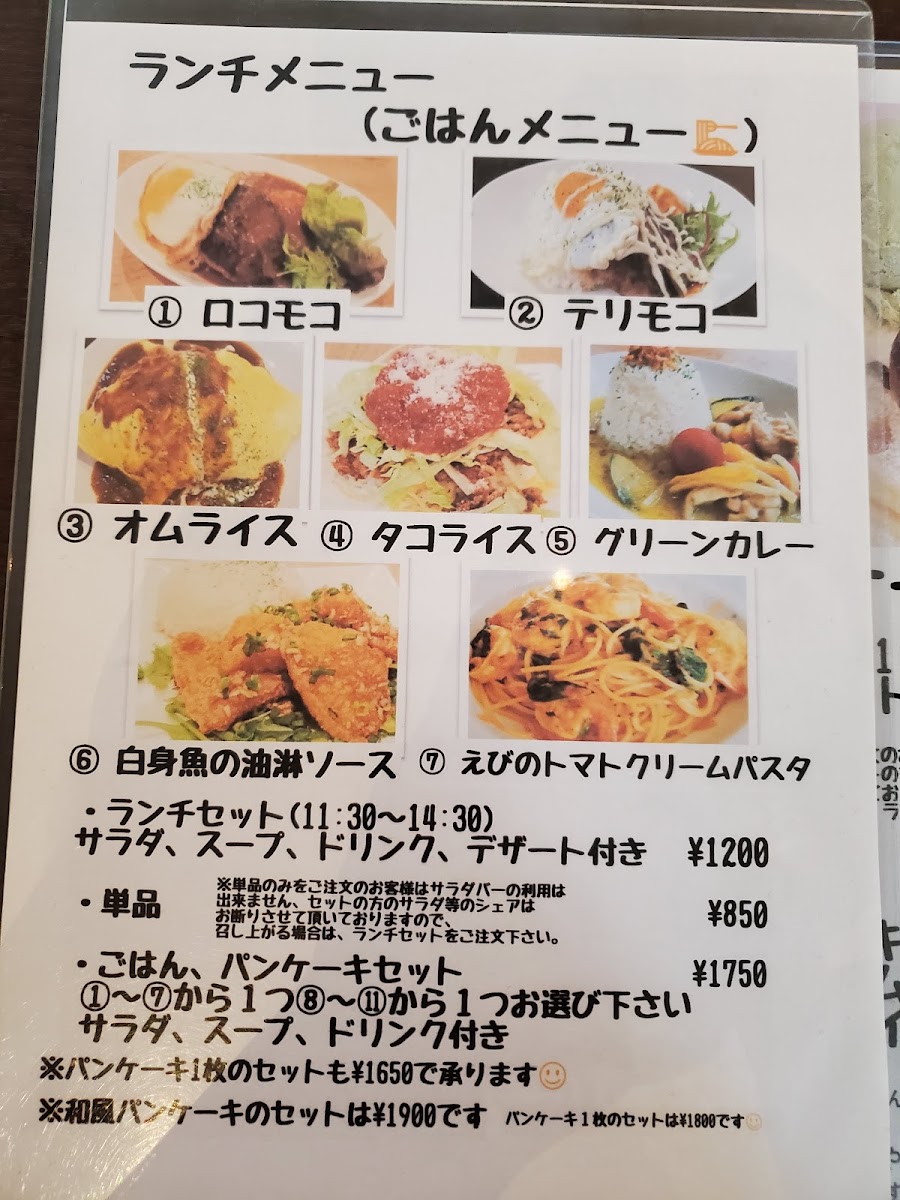 ランチメニュー
(ごはんメニュー)
① ロコモコ
② テリモコ
③ オムライス
④ タコライス
⑤ グリーンカレー
⑥ 白身魚の油淋ソース
⑦ えびのトマトクリームパスタ
・ランチセット(11:30〜14:30)
サラダ、スープ、ドリンク、デザート付き ¥1200
・単品 ¥850
※単品のみをご注文のお客様はサラダバーの利用は
出来ません、セットの方のサラダ等のシェアは
お断りさせて頂いておりますので、
召し上がる場合は、ランチセットをご注文下さい。
・ごはん、パンケーキセット ¥1750
①〜⑦から1つ⑧〜⑪から1つお選び下さい
サラダ、スープ、ドリンク付き
※パンケーキ1枚のセットも¥1650で承ります
※和風パンケーキのセットは¥1900です パンケーキ1枚のセットは¥1800です